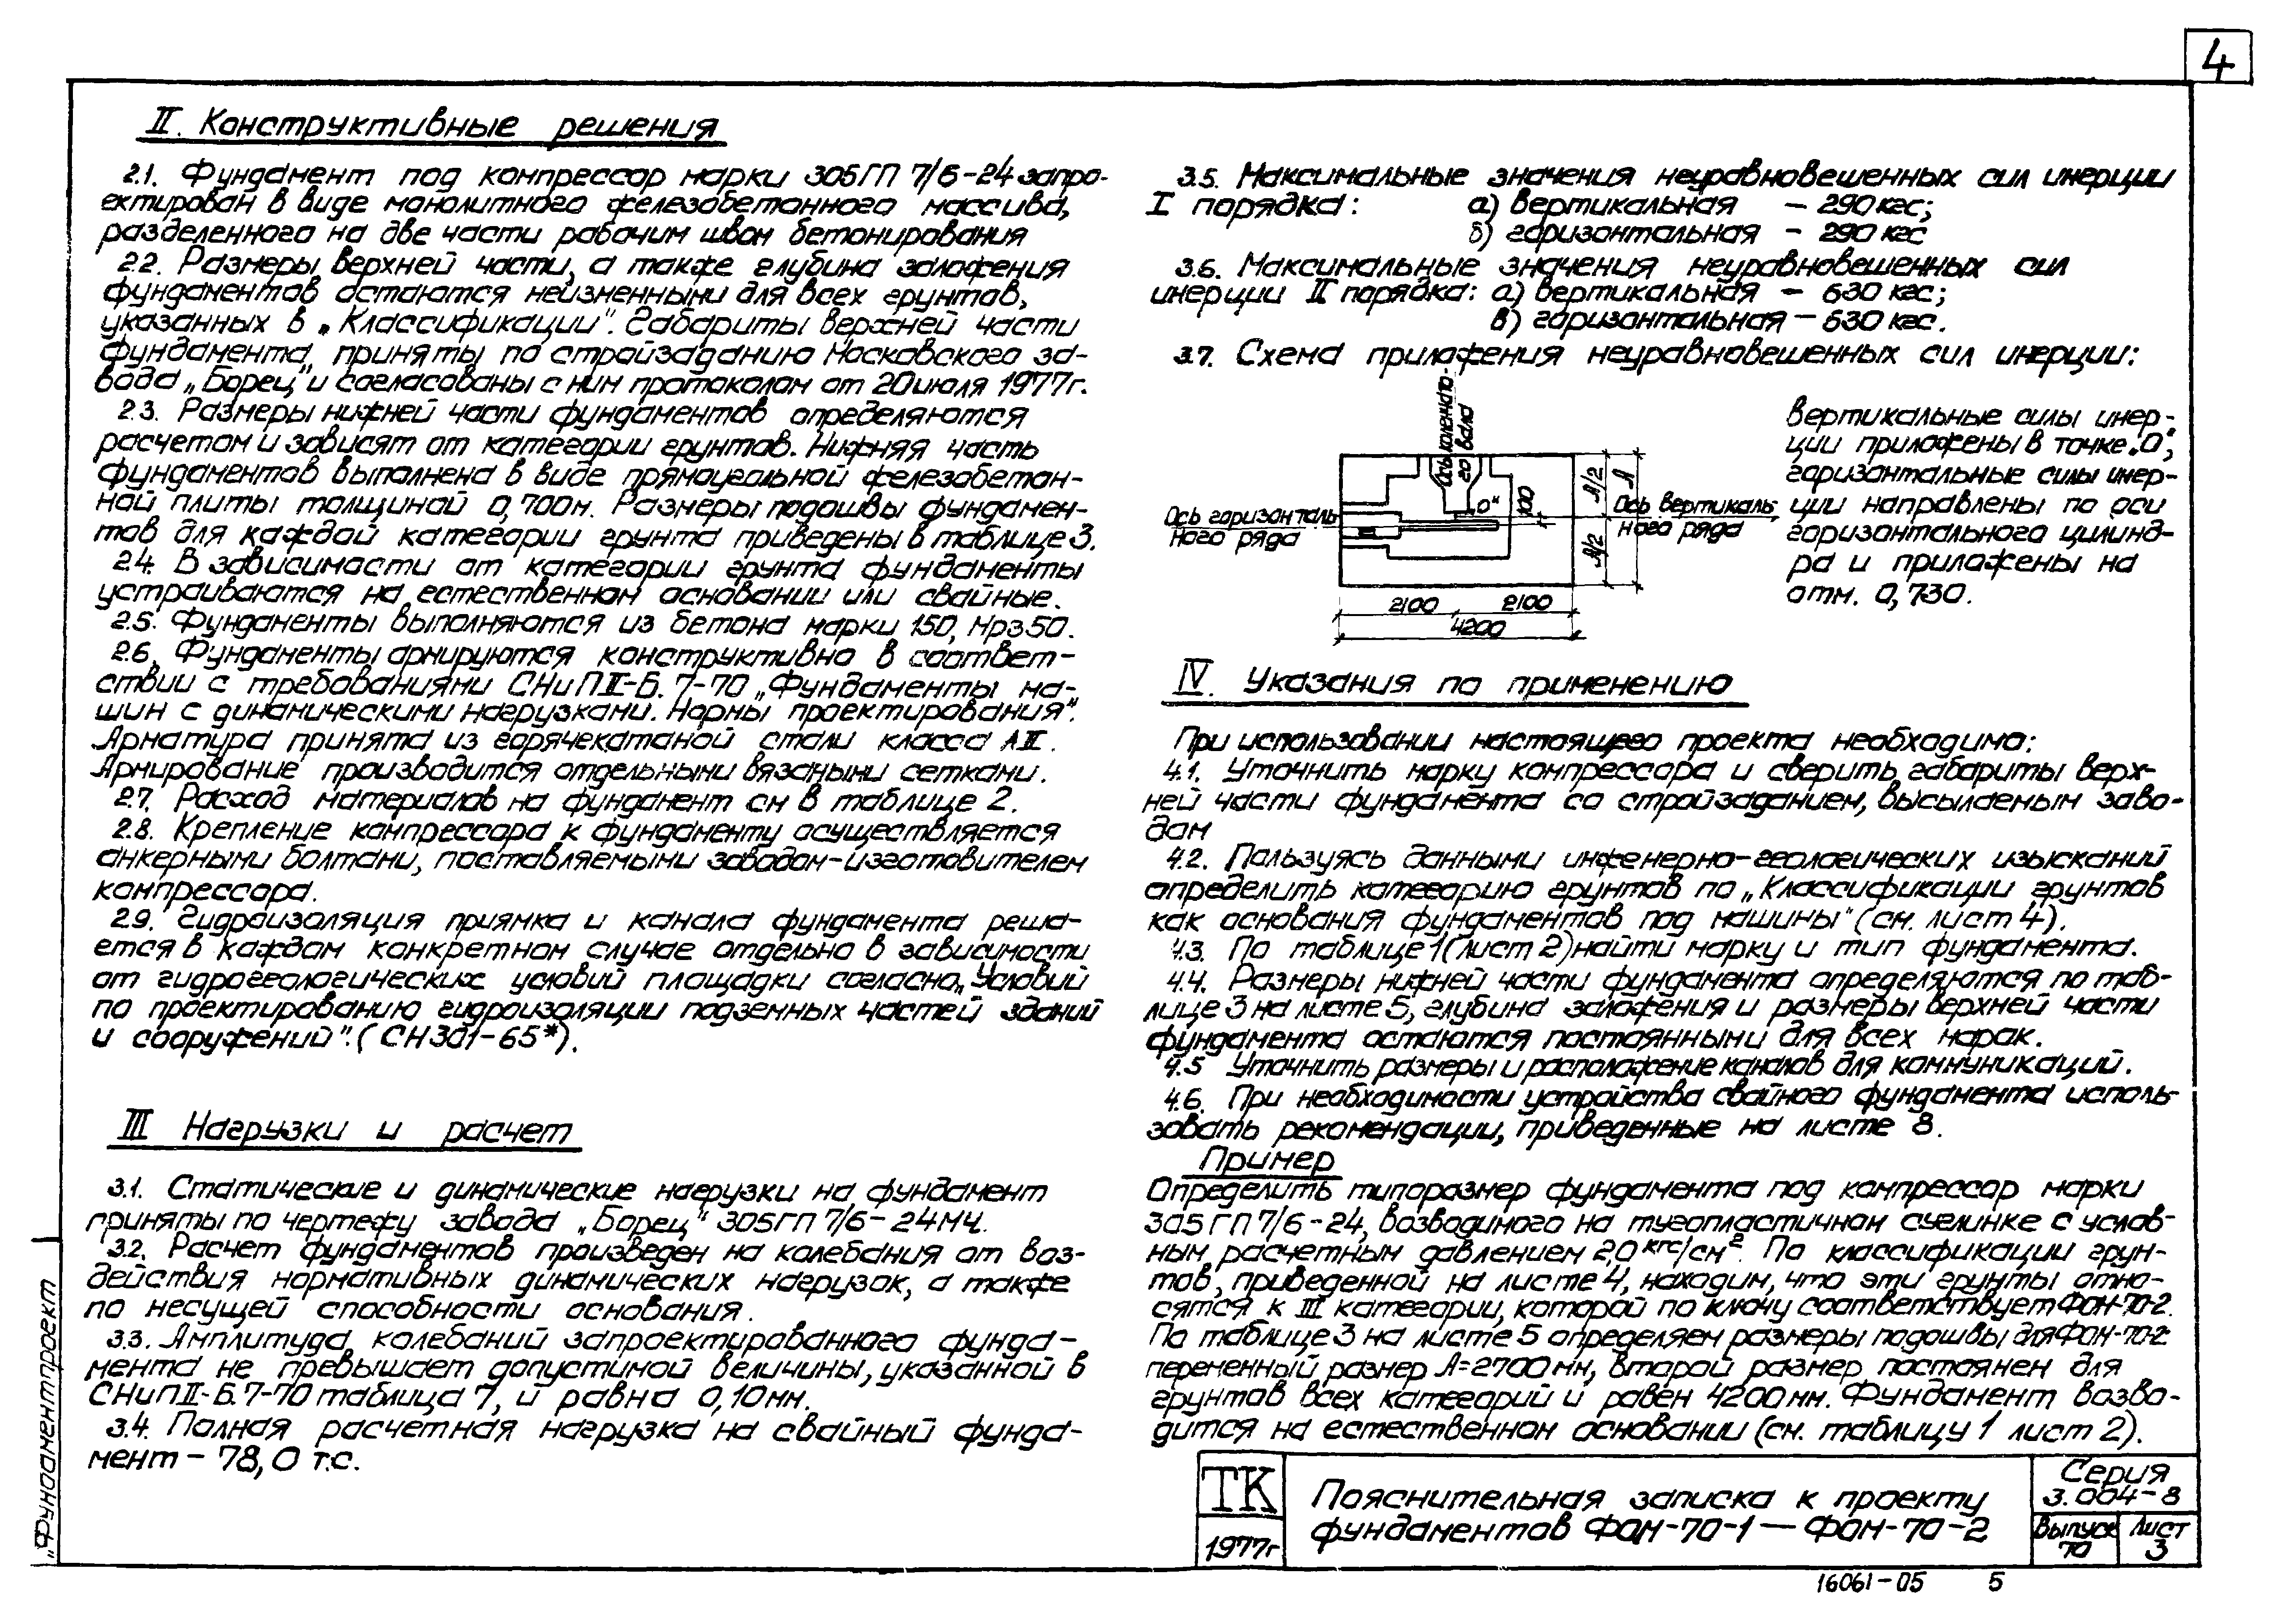 4
II. Конструктивные решения
2.1. Фундамент под компрессор марки 305ГП 7/6-24 запро-
ектирован в виде монолитного железобетонного массива,
разделенного на две части рабочим швом бетонирования
2.2. Размеры верхней части, а также глубина заложения
фундаментов остаются неизменными для всех грунтов,
указанных в „Классификации". Габариты верхней части
фундамента приняты по стройзаданию Московского за-
вода „Борец" и согласованы с ним протоколом от 20 июля 1977г.
2.3. Размеры нижней части фундаментов определяются
расчетом и зависят от категории грунтов. Нижняя часть
фундаментов выполнена в виде прямоугольной железобетон-
ной плиты толщиной 0,700м. Размеры подошвы фундамен-
тов для каждой категории грунта приведены в таблице 3.
2.4. В зависимости от категории грунта фундаменты
устраиваются на естественном основании или свайные.
2.5. Фундаменты выполняются из бетона марки 150, Мрз50.
2.6. Фундаменты армируются конструктивно в соответ-
ствии с требованиями СНиП II-Б. 7-70 „Фундаменты ма-
шин с динамическими нагрузками. Нормы проектирования".
Арматура принята из горячекатаной стали класса АII.
Армирование производится отдельными вязаными сетками.
2.7. Расход материалов на фундамент см в таблице 2.
2.8. Крепление компрессора к фундаменту осуществляется
анкерными болтами, поставляемыми заводом-изготовителем
компрессора.
2.9. Гидроизоляция приямка и канала фундамента реша-
ется в каждом конкретном случае отдельно в зависимости
от гидрогеологических условий площадки согласно „Условий
по проектированию гидроизоляции подземных частей зданий
и сооружений". (СН301-65*).
III Нагрузки и расчет
3.1. Статические и динамические нагрузки на фундамент
приняты по чертежу завода „Борец" 305ГП 7/6-24МЧ.
3.2. Расчет фундаментов произведен на колебания от воз-
действия нормативных динамических нагрузок, а также
по несущей способности основания.
3.3. Амплитуда колебаний запроектированного фунда-
мента не превышает допустимой величины, указанной в
СНиП II-Б.7-70 таблица 7, и равна 0,10мм.
3.4. Полная расчетная нагрузка на свайный фунда-
мент - 78,0 т.с.
3.5. Максимальные значения неуравновешенных сил инерции
I порядка: а) вертикальная - 290 кгс;
б) горизонтальная - 290 кгс
3.6. Максимальные значения неуравновешенных сил
инерции II порядка: а) вертикальная - 630 кгс;
в) горизонтальная - 630 кгс.
3.7. Схема приложения неуравновешенных сил инерции:
Ось коленчато-
го вала
Ось горизонталь
ного ряда
„0"
100
А/2
А/2
А
Ось вертикаль-
ного ряда
2100 2100
4200
Вертикальные силы инер-
ции приложены в точке „0",
горизонтальные силы инер-
ции направлены по оси
горизонтального цилинд-
ра и приложены на
отм. 0,730.
IV. Указания по применению
При использовании настоящего проекта необходимо:
4.1. Уточнить марку компрессора и сверить габариты верх-
ней части фундамента со стройзаданием, высылаемым заво-
дом
4.2. Пользуясь данными инженерно-геологических изысканий
определить категорию грунтов по „Классификации грунтов
как основания фундаментов под машины" (см. лист 4).
4.3. По таблице 1 (лист 2) найти марку и тип фундамента.
4.4. Размеры нижней части фундамента определяются по таб-
лице 3 на листе 5, глубина заложения и размеры верхней части
фундамента остаются постоянными для всех марок.
4.5 Уточнить размеры и расположение каналов для коммуникаций.
4.6. При необходимости устройства свайного фундамента исполь-
зовать рекомендации, приведенные на листе 8.
Пример
Определить типоразмер фундамента под компрессор марки
305ГП 7/6-24, возводимого на тугопластичном суглинке с услов-
ным расчетным давлением 2,0 кгс/см². По классификации грун-
тов, приведенной на листе 4, находим, что эти грунты отно-
сятся к III категории, которой по ключу соответствует ФОМ-70-2.
По таблице 3 на листе 5 определяем размеры подошвы для ФОМ-70-2
переменный размер А=2700мм, второй размер постоянен для
грунтов всех категорий и равен 4200мм. Фундамент возво-
дится на естественном основании (см. таблицу 1 лист 2).
„Фундаментпроект
ТК
1977г
Пояснительная записка к проекту
фундаментов ФОМ-70-1 — ФОМ-70-2
Серия
3.004-8
Выпуск
70
Лист
3
16061-05 5